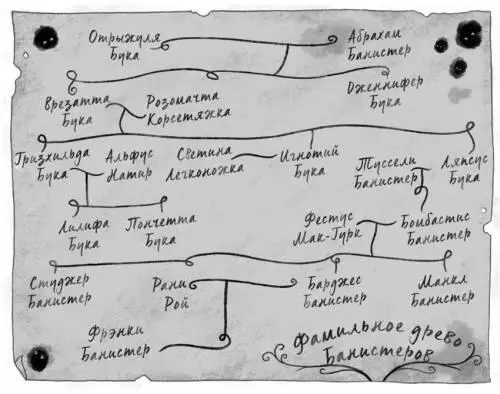 Отрыжуля
Бука
Абрахам
Банистер
Врезатта
Бука
Розомачта
Корсетяжка
Дженнифер
Бука
Гризхильда
Бука
Альфус
Натир
Сетина
Легконожка
Игнотий
Бука
Туссели
Банистер
Ляпсус
Бука
Лилифа
Бука
Пончетта
Бука
Фестус
Мак-Гурк
Бомбастис
Банистер
Студжер
Банистер
Рани
Рой
Барджес
Банистер
Манкл
Банистер
Фрэнки
Банистер
Фамильное древо
Банистеров